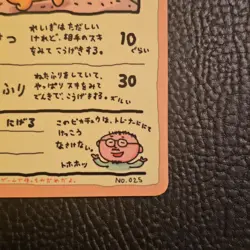 れいぎはただしい
けれど、相手のスキ
をみて こうげきする。
10
ぐらい
ねたふりをしていて、
やっぱり スキをみて
でんきで、こうげきする。ズルい
ふり
30
にげる
このピカチュウは、トレーナーににて
けっこう
なさけない。
トホホッ
NO.025